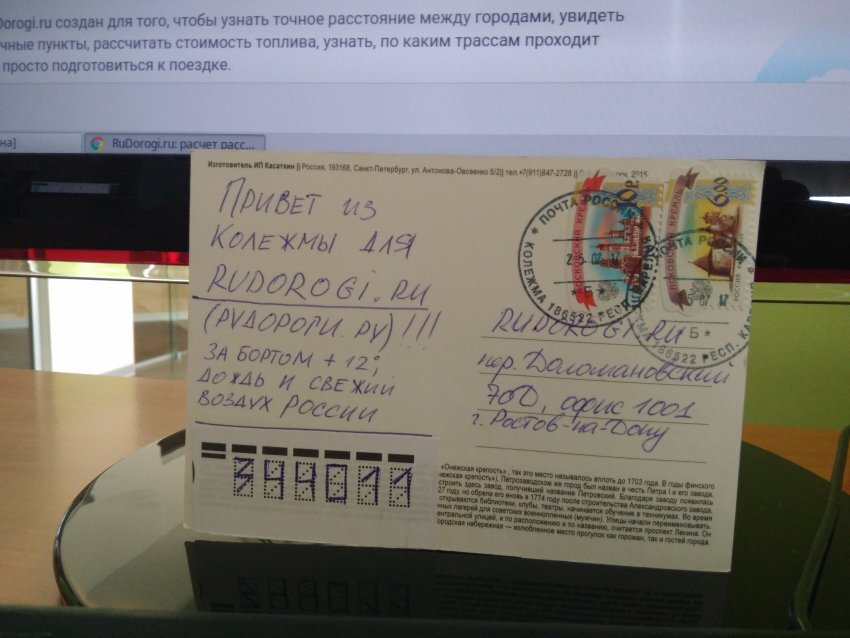 Dorogi.ru создан для того, чтобы узнать точное расстояние между городами, увидеть
чные пункты, рассчитать стоимость топлива, узнать, по каким трассам проходит
просто подготовиться к поездке.
на]
RuDorogi.ru: расчет расс...
Изготовитель ИП Касаткин || Россия, 193168, Санкт-Петербург, ул. Антонова-Овсеенко 5/2|| тел.+7(911)847-2728 ||
ПРИВЕТ ИЗ
КОЛЕЖМЫ ДЛЯ
RUDOROGI.RU
(РУДОРОГИ.РУ)!!!
ЗА БОРТОМ +12;
ДОЖДЬ И СВЕЖИЙ
ВОЗДУХ РОССИИ
344011
МОСКОВСКИЙ КРЕМЛЬ
10 Р.
6,00
РОССИЯ
* ПОЧТА РОССИИ
* КОЛЕЖМА 186522 РЕСП.
* Б *
ПОЧТА РОССИИ *
186522 РЕСП.
07 17
Б *
RUDOROGI.RU
пер. Доломановский
70D, офис 1001
г. Ростов-на-Дону
«Онежская крепость», так это место называлось вплоть до 1703 года. В годы финского
«ежская крепость»). Петрозаводском же город был назван в честь Петра I и его завода.
строить здесь завод, получивший название Петровский. Благодаря заводу появилась
27 году, но обрела его вновь в 1774 году после строительства Александровского завода.
открываются библиотеки, клубы, театры, начинается обучение в техникумах. Во время
нных лагерей для советских военнопленных (мужчин). Улицы начали переименовывать.
ентральной улицей, и по расположению и по названию, считается проспект Ленина. Он
ородская набережная — излюбленное место прогулок как горожан, так и гостей города.